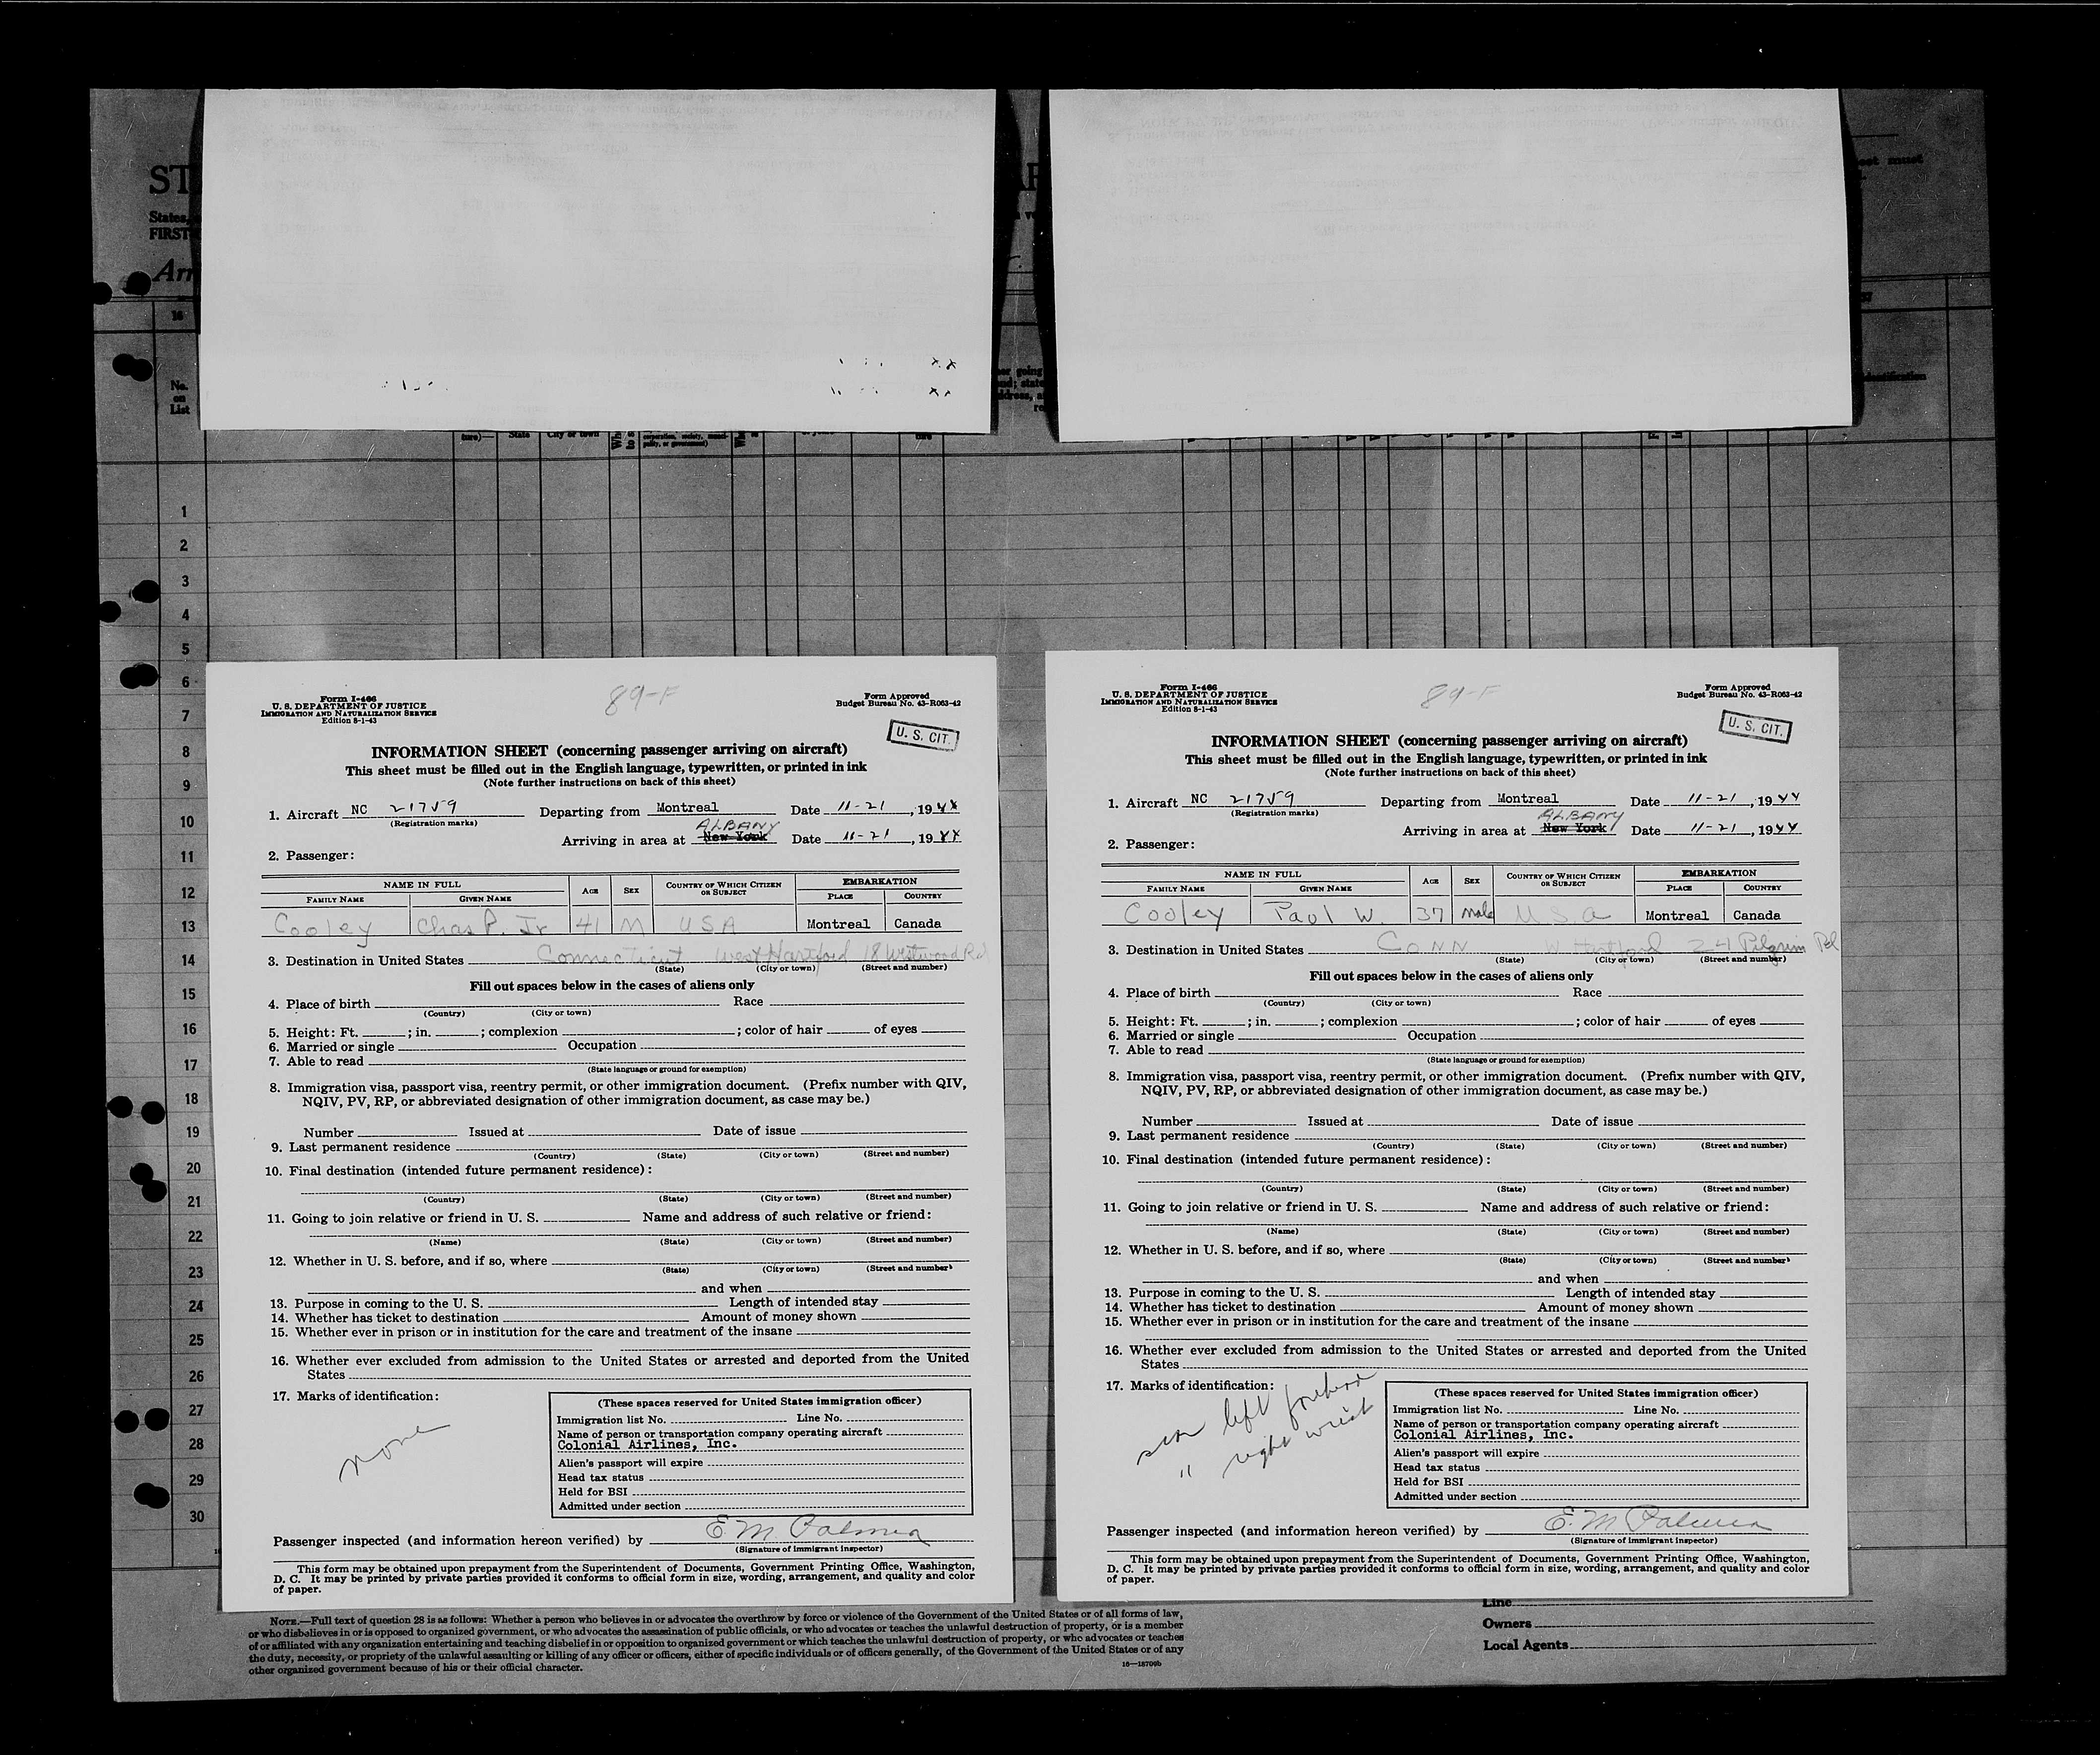 ST
States,
FIRST
Arr
16
No.
on
List
ture)—
State
City or town
1
2
3
4
5
6
7
8
9
10
11
12
13
14
15
16
17
18
19
20
21
22
23
24
25
26
27
28
29
30
Form I-466
U. S. DEPARTMENT OF JUSTICE
IMMIGRATION AND NATURALIZATION SERVICE
Edition 8-1-43
89-F
Form Approved
Budget Bureau No. 43-R063-42
U. S. CIT.
INFORMATION SHEET (concerning passenger arriving on aircraft)
This sheet must be filled out in the English language, typewritten, or printed in ink
(Note further instructions on back of this sheet)
1. Aircraft NC 21759 Departing from Montreal Date 11-21, 1944
(Registration marks)
ALBANY
Arriving in area at New York Date 11-21, 1944
2. Passenger:
NAME IN FULL AGE SEX COUNTRY OF WHICH CITIZEN OR SUBJECT EMBARKATION
FAMILY NAME GIVEN NAME PLACE COUNTRY
Cooley Chas P. Jr 41 M USA Montreal Canada
3. Destination in United States Connecticut West Hartford 18 Westwood Rd
(State) (City or town) (Street and number)
Fill out spaces below in the cases of aliens only
4. Place of birth Race
(Country) (City or town)
5. Height: Ft. ; in. ; complexion ; color of hair of eyes
6. Married or single Occupation
7. Able to read
(State language or ground for exemption)
8. Immigration visa, passport visa, reentry permit, or other immigration document. (Prefix number with QIV,
NQIV, PV, RP, or abbreviated designation of other immigration document, as case may be.)
Number Issued at Date of issue
9. Last permanent residence
(Country) (State) (City or town) (Street and number)
10. Final destination (intended future permanent residence):
(Country) (State) (City or town) (Street and number)
11. Going to join relative or friend in U. S. Name and address of such relative or friend:
(Name) (State) (City or town) (Street and number)
12. Whether in U. S. before, and if so, where
(State) (City or town) (Street and number)
and when
13. Purpose in coming to the U. S. Length of intended stay
14. Whether has ticket to destination Amount of money shown
15. Whether ever in prison or in institution for the care and treatment of the insane
16. Whether ever excluded from admission to the United States or arrested and deported from the United
States
17. Marks of identification:
none
(These spaces reserved for United States immigration officer)
Immigration list No. Line No.
Name of person or transportation company operating aircraft
Colonial Airlines, Inc.
Alien's passport will expire
Head tax status
Held for BSI
Admitted under section
Passenger inspected (and information hereon verified) by E. M. Palmer
(Signature of immigrant inspector)
This form may be obtained upon prepayment from the Superintendent of Documents, Government Printing Office, Washington,
D. C. It may be printed by private parties provided it conforms to official form in size, wording, arrangement, and quality and color
of paper.
Form I-466
U. S. DEPARTMENT OF JUSTICE
IMMIGRATION AND NATURALIZATION SERVICE
Edition 8-1-43
89-F
Form Approved
Budget Bureau No. 43-R063-42
U. S. CIT.
INFORMATION SHEET (concerning passenger arriving on aircraft)
This sheet must be filled out in the English language, typewritten, or printed in ink
(Note further instructions on back of this sheet)
1. Aircraft NC 21759 Departing from Montreal Date 11-21, 1944
(Registration marks)
ALBANY
Arriving in area at New York Date 11-21, 1944
2. Passenger:
NAME IN FULL AGE SEX COUNTRY OF WHICH CITIZEN OR SUBJECT EMBARKATION
FAMILY NAME GIVEN NAME PLACE COUNTRY
Cooley Paul W. 37 Male U.S.a Montreal Canada
3. Destination in United States CONN W Hartford 24 Pilgrim Rd
(State) (City or town) (Street and number)
Fill out spaces below in the cases of aliens only
4. Place of birth Race
(Country) (City or town)
5. Height: Ft. ; in. ; complexion ; color of hair of eyes
6. Married or single Occupation
7. Able to read
(State language or ground for exemption)
8. Immigration visa, passport visa, reentry permit, or other immigration document. (Prefix number with QIV,
NQIV, PV, RP, or abbreviated designation of other immigration document, as case may be.)
Number Issued at Date of issue
9. Last permanent residence
(Country) (State) (City or town) (Street and number)
10. Final destination (intended future permanent residence):
(Country) (State) (City or town) (Street and number)
11. Going to join relative or friend in U. S. Name and address of such relative or friend:
(Name) (State) (City or town) (Street and number)
12. Whether in U. S. before, and if so, where
(State) (City or town) (Street and number)
and when
13. Purpose in coming to the U. S. Length of intended stay
14. Whether has ticket to destination Amount of money shown
15. Whether ever in prison or in institution for the care and treatment of the insane
16. Whether ever excluded from admission to the United States or arrested and deported from the United
States
17. Marks of identification:
scar left forehead
" right wrist
(These spaces reserved for United States immigration officer)
Immigration list No. Line No.
Name of person or transportation company operating aircraft
Colonial Airlines, Inc.
Alien's passport will expire
Head tax status
Held for BSI
Admitted under section
Passenger inspected (and information hereon verified) by E. M. Palmer
(Signature of immigrant inspector)
This form may be obtained upon prepayment from the Superintendent of Documents, Government Printing Office, Washington,
D. C. It may be printed by private parties provided it conforms to official form in size, wording, arrangement, and quality and color
of paper.
NOTE.—Full text of question 28 is as follows: Whether a person who believes in or advocates the overthrow by force or violence of the Government of the United States or of all forms of law,
or who disbelieves in or is opposed to organized government, or who advocates the assassination of public officials, or who advocates or teaches the unlawful destruction of property, or is a member
of or affiliated with any organization entertaining and teaching disbelief in or opposition to organized government or which teaches the unlawful destruction of property, or who advocates or teaches
the duty, necessity, or propriety of the unlawful assaulting or killing of any officer or officers, either of specific individuals or of officers generally, of the Government of the United States or of any
other organized government because of his or their official character.
16—18709b
Line
Owners
Local Agents